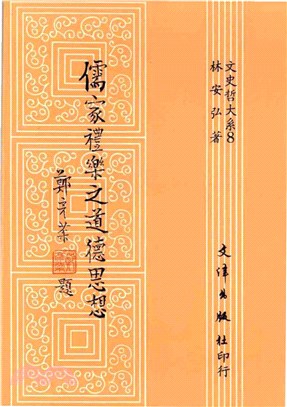 文史哲大系8
林安弘著
文津出版社印行
儒家禮樂之道德思想
鄭彥棻題